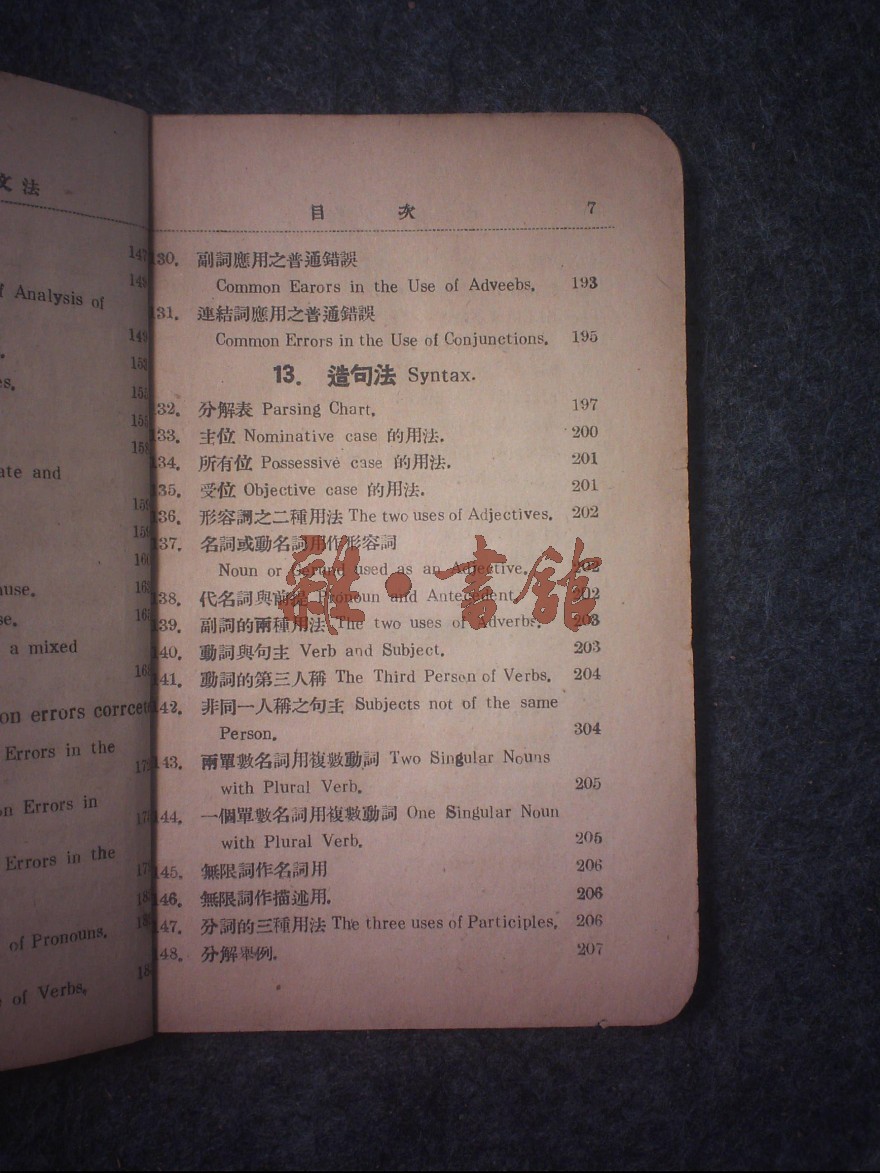 文法
147
148
f Analysis of
149
es.
ate and
159
159
ause.
se.
a mixed
168
on errors corrcete
Errors in the
on Errors in
Errors in the
of Pronouns.
e of Verbs.
目 次 7
130. 副詞應用之普通錯誤
Common Earors in the Use of Adveebs. 193
131. 連結詞應用之普通錯誤
Common Errors in the Use of Conjunctions. 195
13. 造句法 Syntax.
132. 分解表 Parsing Chart. 197
133. 主位 Nominative case 的用法. 200
134. 所有位 Possessive case 的用法. 201
135. 受位 Objective case 的用法. 201
136. 形容調之二種用法 The two uses of Adjectives. 202
137. 名詞或動名詞用作形容詞
Noun or Gerund used as an Adjective. 202
138. 代名詞與前提 Pronoun and Antecedent. 202
139. 副詞的兩種用法 The two uses of Adverbs. 203
140. 動詞與句主 Verb and Subject. 203
141. 動詞的第三人稱 The Third Person of Verbs. 204
142. 非同一人稱之句主 Subjects not of the same
Person. 304
143. 兩單數名詞用複數動詞 Two Singular Nouns
with Plural Verb. 205
144. 一個單數名詞用複數動詞 One Singular Noun
with Plural Verb. 205
145. 無限詞作名詞用 206
146. 無限詞作描述用. 206
147. 分詞的三種用法 The three uses of Participles. 206
148. 分解舉例. 207
雜·書館